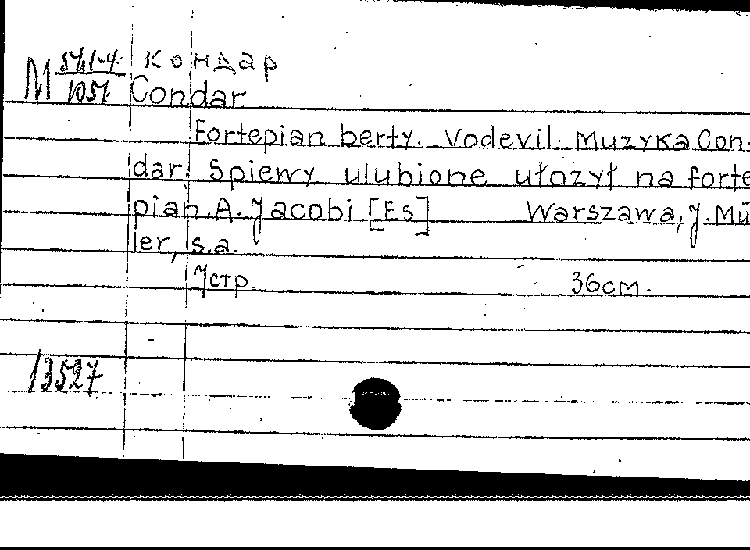 M 57.1-4. Кондар
1051 Condar
Fortepian berty. Vodevil. Muzyka Con-
dar. Spiewy ulubione ułozył na forte
pian A. Jacobi [Es] Warszawa, J. Mü
ler, s.a.
7стр. 36см.
13527